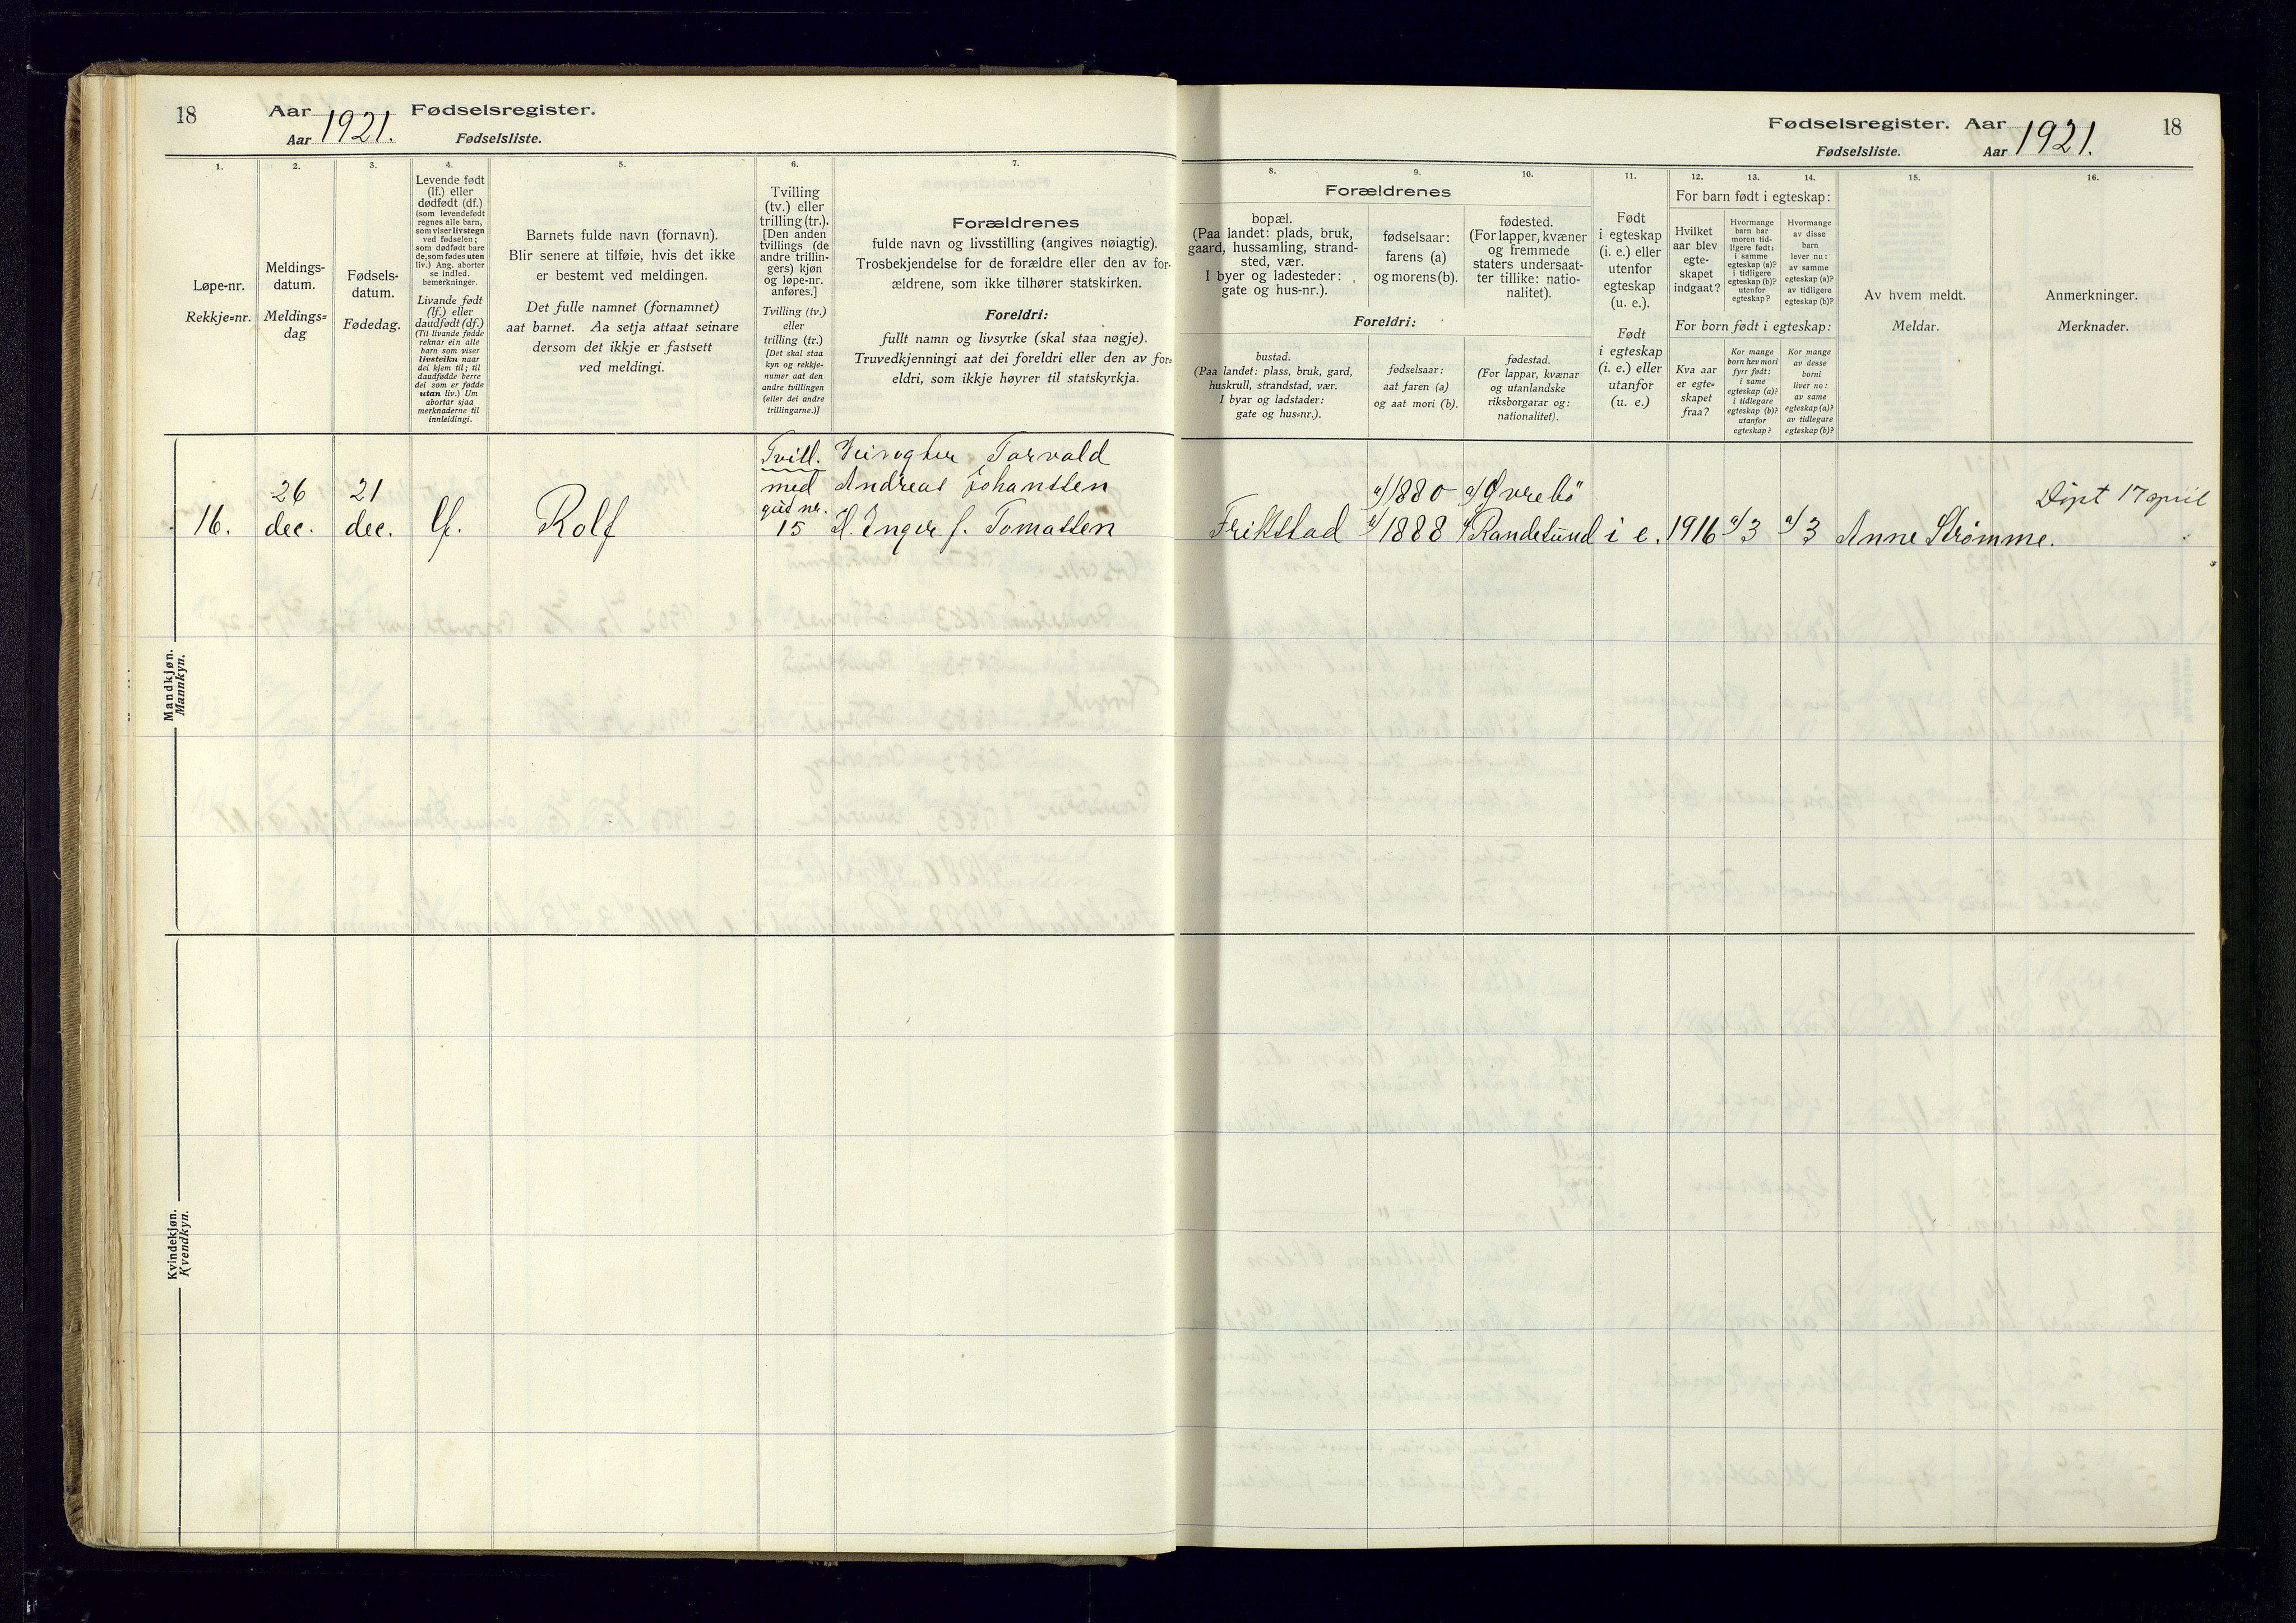 18
Aar 1921. Fødselsregister.
Aar Fødselsliste.
1. 2. 3. 4. 5. 6. 7.
Løpe-nr.
Rekkje-nr.
Meldings-
datum.
Meldings-
dag
Fødsels-
datum.
Fødedag.
Levende født
(lf.) eller
dødfødt (df.)
(som levendefødt
regnes alle barn,
som viser livstegn
ved fødselen;
som dødfødt bare
de, som fødes uten
liv.) Ang. aborter
se indled.
bemerkninger.
Livande født
(lf.) eller
daudfødt (df.)
(Til livande fødde
reknar ein alle
barn som viser
livsteikn naar
dei kjem til; til
daudfødde berre
dei som er fødde
utan liv.) Um
abortar sjaa
merknaderne til
innleidingi.
Barnets fulde navn (fornavn).
Blir senere at tilføie, hvis det ikke
er bestemt ved meldingen.
Det fulle namnet (fornamnet)
aat barnet. Aa setja attaat seinare
dersom det ikkje er fastsett
ved meldingi.
Tvilling
(tv.) eller
trilling (tr.).
[Den anden
tvillings (de
andre trillin-
gers) kjøn
og løpe-nr.
anføres.]
Tvilling (tv.)
eller
trilling (tr.)
[Det skal staa
kyn og rekkje-
numer aat den
andre tvillingen
(eller dei andre
trillingarne.)]
Forældrenes
fulde navn og livsstilling (angives nøiagtig).
Trosbekjendelse for de forældre eller den av for-
ældrene, som ikke tilhører statskirken.
Foreldri:
fullt namn og livsyrke (skal staa nøgje).
Truvedkjenningi aat dei foreldri eller den av for-
eldri, som ikkje høyrer til statskyrkja.
Mandkjøn.
Mannkyn.
16.
26
dec.
21
dec.
lf.
Rolf
Tvill.
med
gut nr.
15
Torvald
Andreas Johanssen
H. Inger f. Tomassen
Kvindekjøn.
Kvendkyn.
Fødselsregister. Aar 1921. 18
Fødselsliste. Aar
8. 9. 10. 11. 12. 13. 14. 15. 16.
Forældrenes
bopæl.
(Paa landet: plads, bruk,
gaard, hussamling, strand-
sted, vær.
I byer og ladesteder:
gate og hus-nr.).
fødselsaar:
farens (a)
og morens (b).
fødested.
(For lapper, kvæner
og fremmede
staters undersaat-
ter tillike: natio-
nalitet).
Foreldri:
bustad.
(Paa landet: plass, bruk, gard,
huskrull, strandstad, vær.
I byar og ladstader:
gate og hus-nr.).
fødselsaar:
aat faren (a)
og aat mori (b).
fødestad.
(For lappar, kvænar
og utanlandske
riksborgarar og:
nationalitet).
Født
i egteskap
(i. e.) eller
utenfor
egteskap
(u. e.).
Født
i egteskap
(i. e.) eller
utanfor
(u. e.)
For barn født i egteskap:
Hvilket
aar blev
egte-
skapet
indgaat?
Hvormange
barn har
moren tid-
ligere født:
i samme
egteskap (a)?
i tidligere
egteskap (b)?
utenfor
egteskap?
Hvormange
av disse
barn
lever nu:
av samme
egteskap (a)?
av tidligere
egteskap (b)?
For born født i egteskap:
Kva aar
er egte-
skapet
fraa?
Kor mange
born hev mori
fyrr født:
i same
egteskap (a)?
i tidlegare
egteskap (b)?
utanfor
egteskap?
Kor mange
av desse
borni
liver no:
av same
egteskap (a)?
av tidlegare
egteskap (b)?
Av hvem meldt.
Meldar.
Anmerkninger.
Merknader.
Frikstad
a/1880
b/1888
a/Øvrebö
b/Randesund
i e.
1916
a/3
a/3
Anne Strømme.
Døpt 17 april